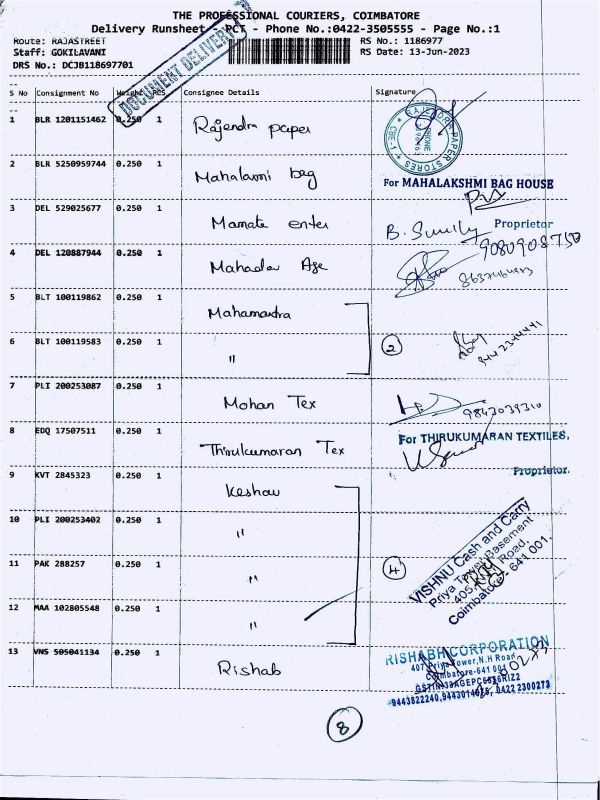 THE PROFESSIONAL COURIERS, COIMBATORE
Delivery Runsheet - PCT - Phone No.:0422-3505555 - Page No.:1
Route: RAJASTREET
RS No.: 1186977
Staff: GOKILAVANI
RS Date: 13-Jun-2023
DRS No.: DCJB118697701
DOCUMENT DELIVERY
S No Consignment No Weight PCS Consignee Details Signature
1 BLR 1201151462 0.250 1 Rajendra paper
RAJENDRA PAPER STORES
PHONE
CBE-1
2 BLR 5250959744 0.250 1 Mahalaxmi bag
For MAHALAKSHMI BAG HOUSE
Proprietor
3 DEL 529025677 0.250 1 Mamata enter
9080908750
4 DEL 120887944 0.250 1 Mahadev Age
5 BLT 100119862 0.250 1
6 BLT 100119583 0.250 1 " 2
7 PLI 200253087 0.250 1 Mohan Tex
9843039310
8 EDQ 17507511 0.250 1 Thirukumaran Tex
For THIRUKUMARAN TEXTILES,
Proprietor.
9 KVT 2845323 0.250 1 Keshav
10 PLI 200253402 0.250 1 "
11 PAK 288257 0.250 1 " 4
12 MAA 102805548 0.250 1 "
VISHNU Cash and Carry
Priya Tower Basement
Road,
Coimbatore - 641 001.
13 VNS 505041134 0.250 1 Rishab
RISHABH CORPORATION
407 Priya Tower, N.H Road
Coimbatore-641 001
9443822240, 0422 2300273
8